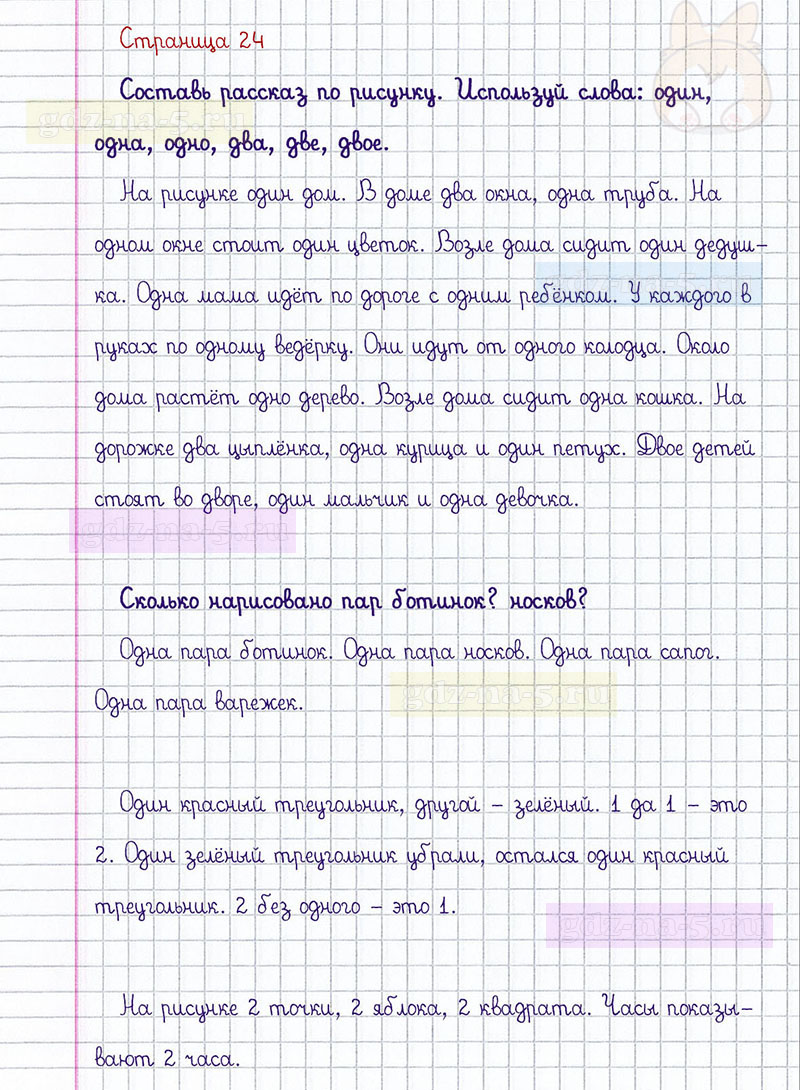 Страница 24
Составь рассказ по рисунку. Используй слова: один,
gdz-na-5.ru
одна, одно, два, две, двое.
На рисунке один дом. В доме два окна, одна труба. На
одном окне стоит один цветок. Возле дома сидит один дедуш-
ка. Одна мама идёт по дороге с одним ребёнком. У каждого в
руках по одному ведёрку. Они идут от одного колодца. Около
дома растёт одно дерево. Возле дома сидит одна кошка. На
дорожке два цыплёнка, одна курица и один петух. Двое детей
стоят во дворе, один мальчик и одна девочка.
gdz-na-5.ru
Сколько нарисовано пар ботинок? носков?
Одна пара ботинок. Одна пара носков. Одна пара сапог.
gdz-na-5.ru
Одна пара варежек.
Один красный треугольник, другой – зелёный. 1 да 1 – это
2. Один зелёный треугольник убрали, остался один красный
треугольник. 2 без одного – это 1.
gdz-na-5.ru
На рисунке 2 точки, 2 яблока, 2 квадрата. Часы показы-
вают 2 часа.